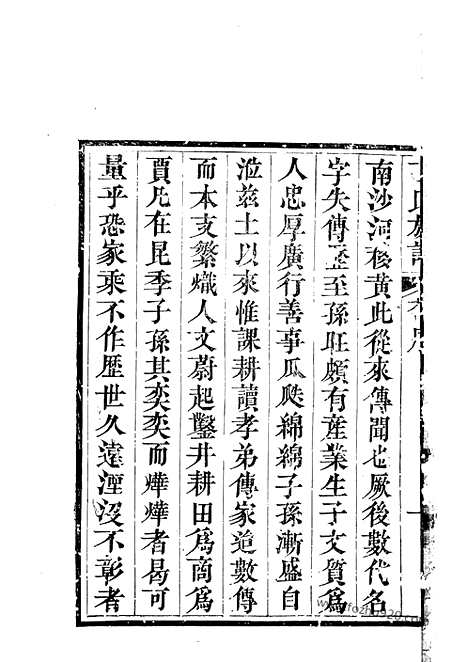 氏族譜
南沙河後黃此從來傳聞也厥後數代名
字失傳歷至孫旺頗有產業生子文質爲
人忠厚廣行善事瓜瓞綿綿子孫漸盛自
涖茲土以來惟課耕讀孝弟傳家迨數傳
而本支繁熾人文蔚起鑿井耕田爲商爲
賈凡在昆季子孫其奕奕而燁燁者曷可
量乎恐家乘不作歷世久遠湮沒不彰者